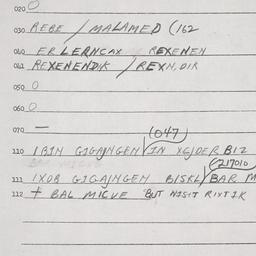 020 O
030 REBE / MALAMED (162
040 ER LERNCAX REXENEN
041 REXENENDIK / REXN, DIK
050 O
060 O
070 —
(047)
110 IBIN GIGAJNGEN IN XEJDER BIZ
(217010
111 IXOB GIGAJNGEN BISKL BAR M
112 + BAL MICVE BUT NISIT RIXTIK